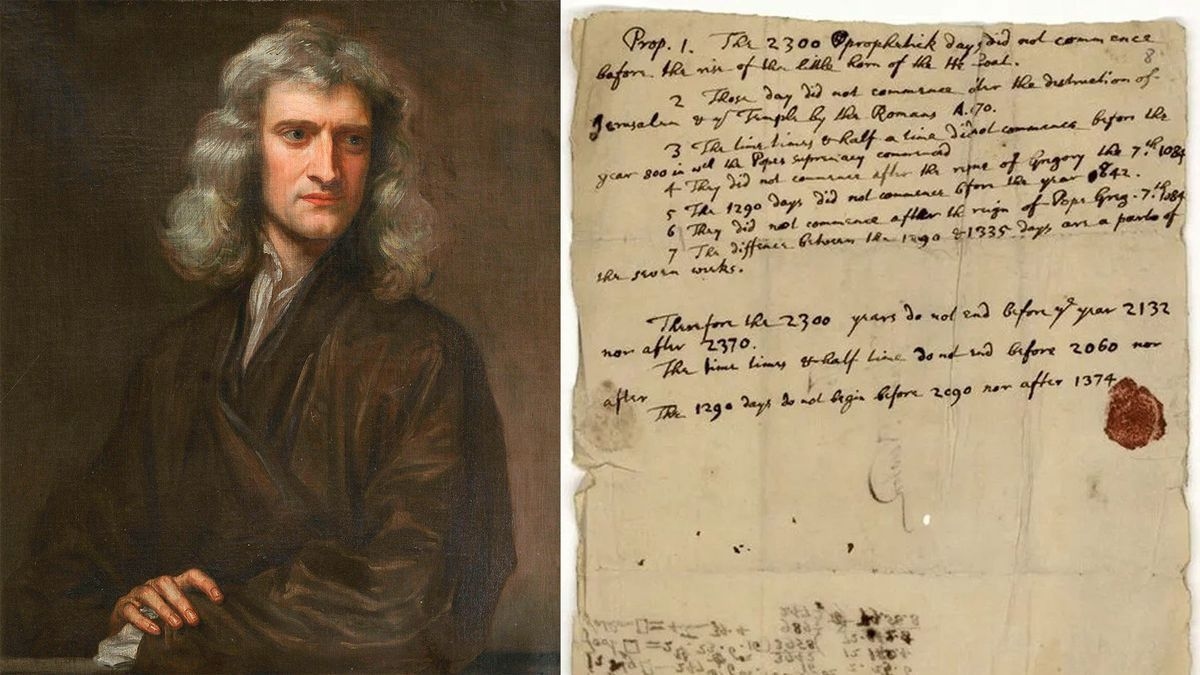 Prop. 1. The 2300 prophetick days did not commence
before the rise of the little horn of the He Goat.
8
2 Those day did not commence after the destruction of
Jerusalem & ye Temple by the Romans A. 70.
3 The time times & half a time did not commence before the
year 800 in wch the Popes supremacy commenced
4 They did not commence after the reigne of Gregory the 7th. 1084
5 The 1290 days did not commence before the year 842.
6 They did not commence after the reign of Pope Greg. 7th. 1084
7 The diffence between the 1290 & 1335 days are a parts of
the seven weeks.
Therefore the 2300 years do not end before ye year 2132
nor after 2370.
The time times & half time do not end before 2060 nor
after
The 1290 days do not begin before 2090 nor after 1374